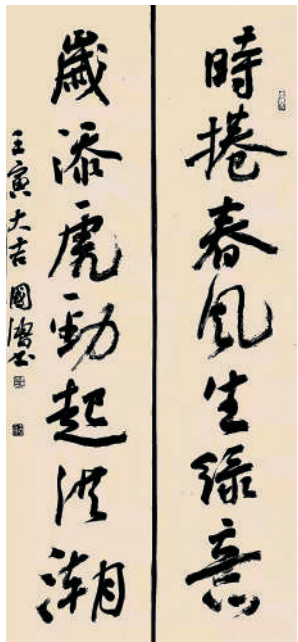 時捲春風生綠意
歲添虎勁起洪潮
壬寅大吉國濤書